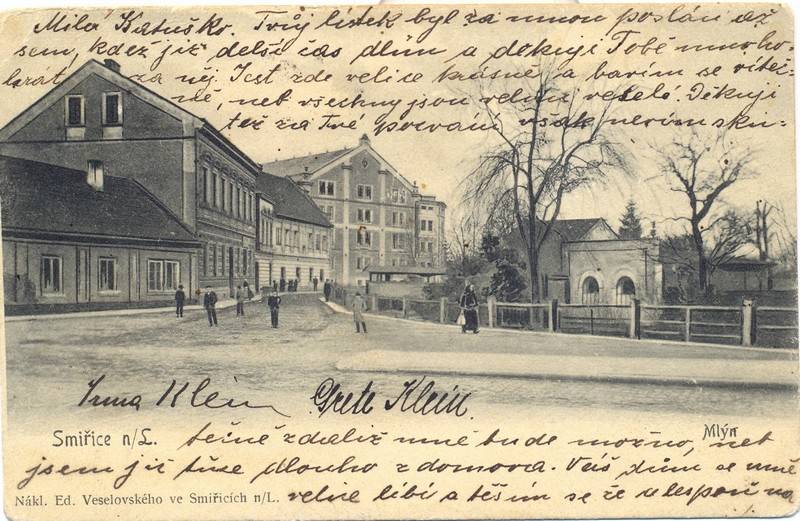 Milá Katuško. Tvůj lístek byl za mnou poslán až
sem, kdež již delší čas dlím a děkuji Tobě mnoho-
krát za něj. Jest zde velice krásně a bavím se výteč-
ně, neb všechny jsou velmi veselé. Děkuji
též za Tvé pozvání však nevím sku-
Irma Klein Grete Klein
Smiřice n/L. Mlýn
tečně zdaliž mně bude možno, neb
jsem již tuze dlouho z domova. Váš dům se mně
Nákl. Ed. Veselovského ve Smiřicích n/L.
velice líbí a těším se že alespoň na